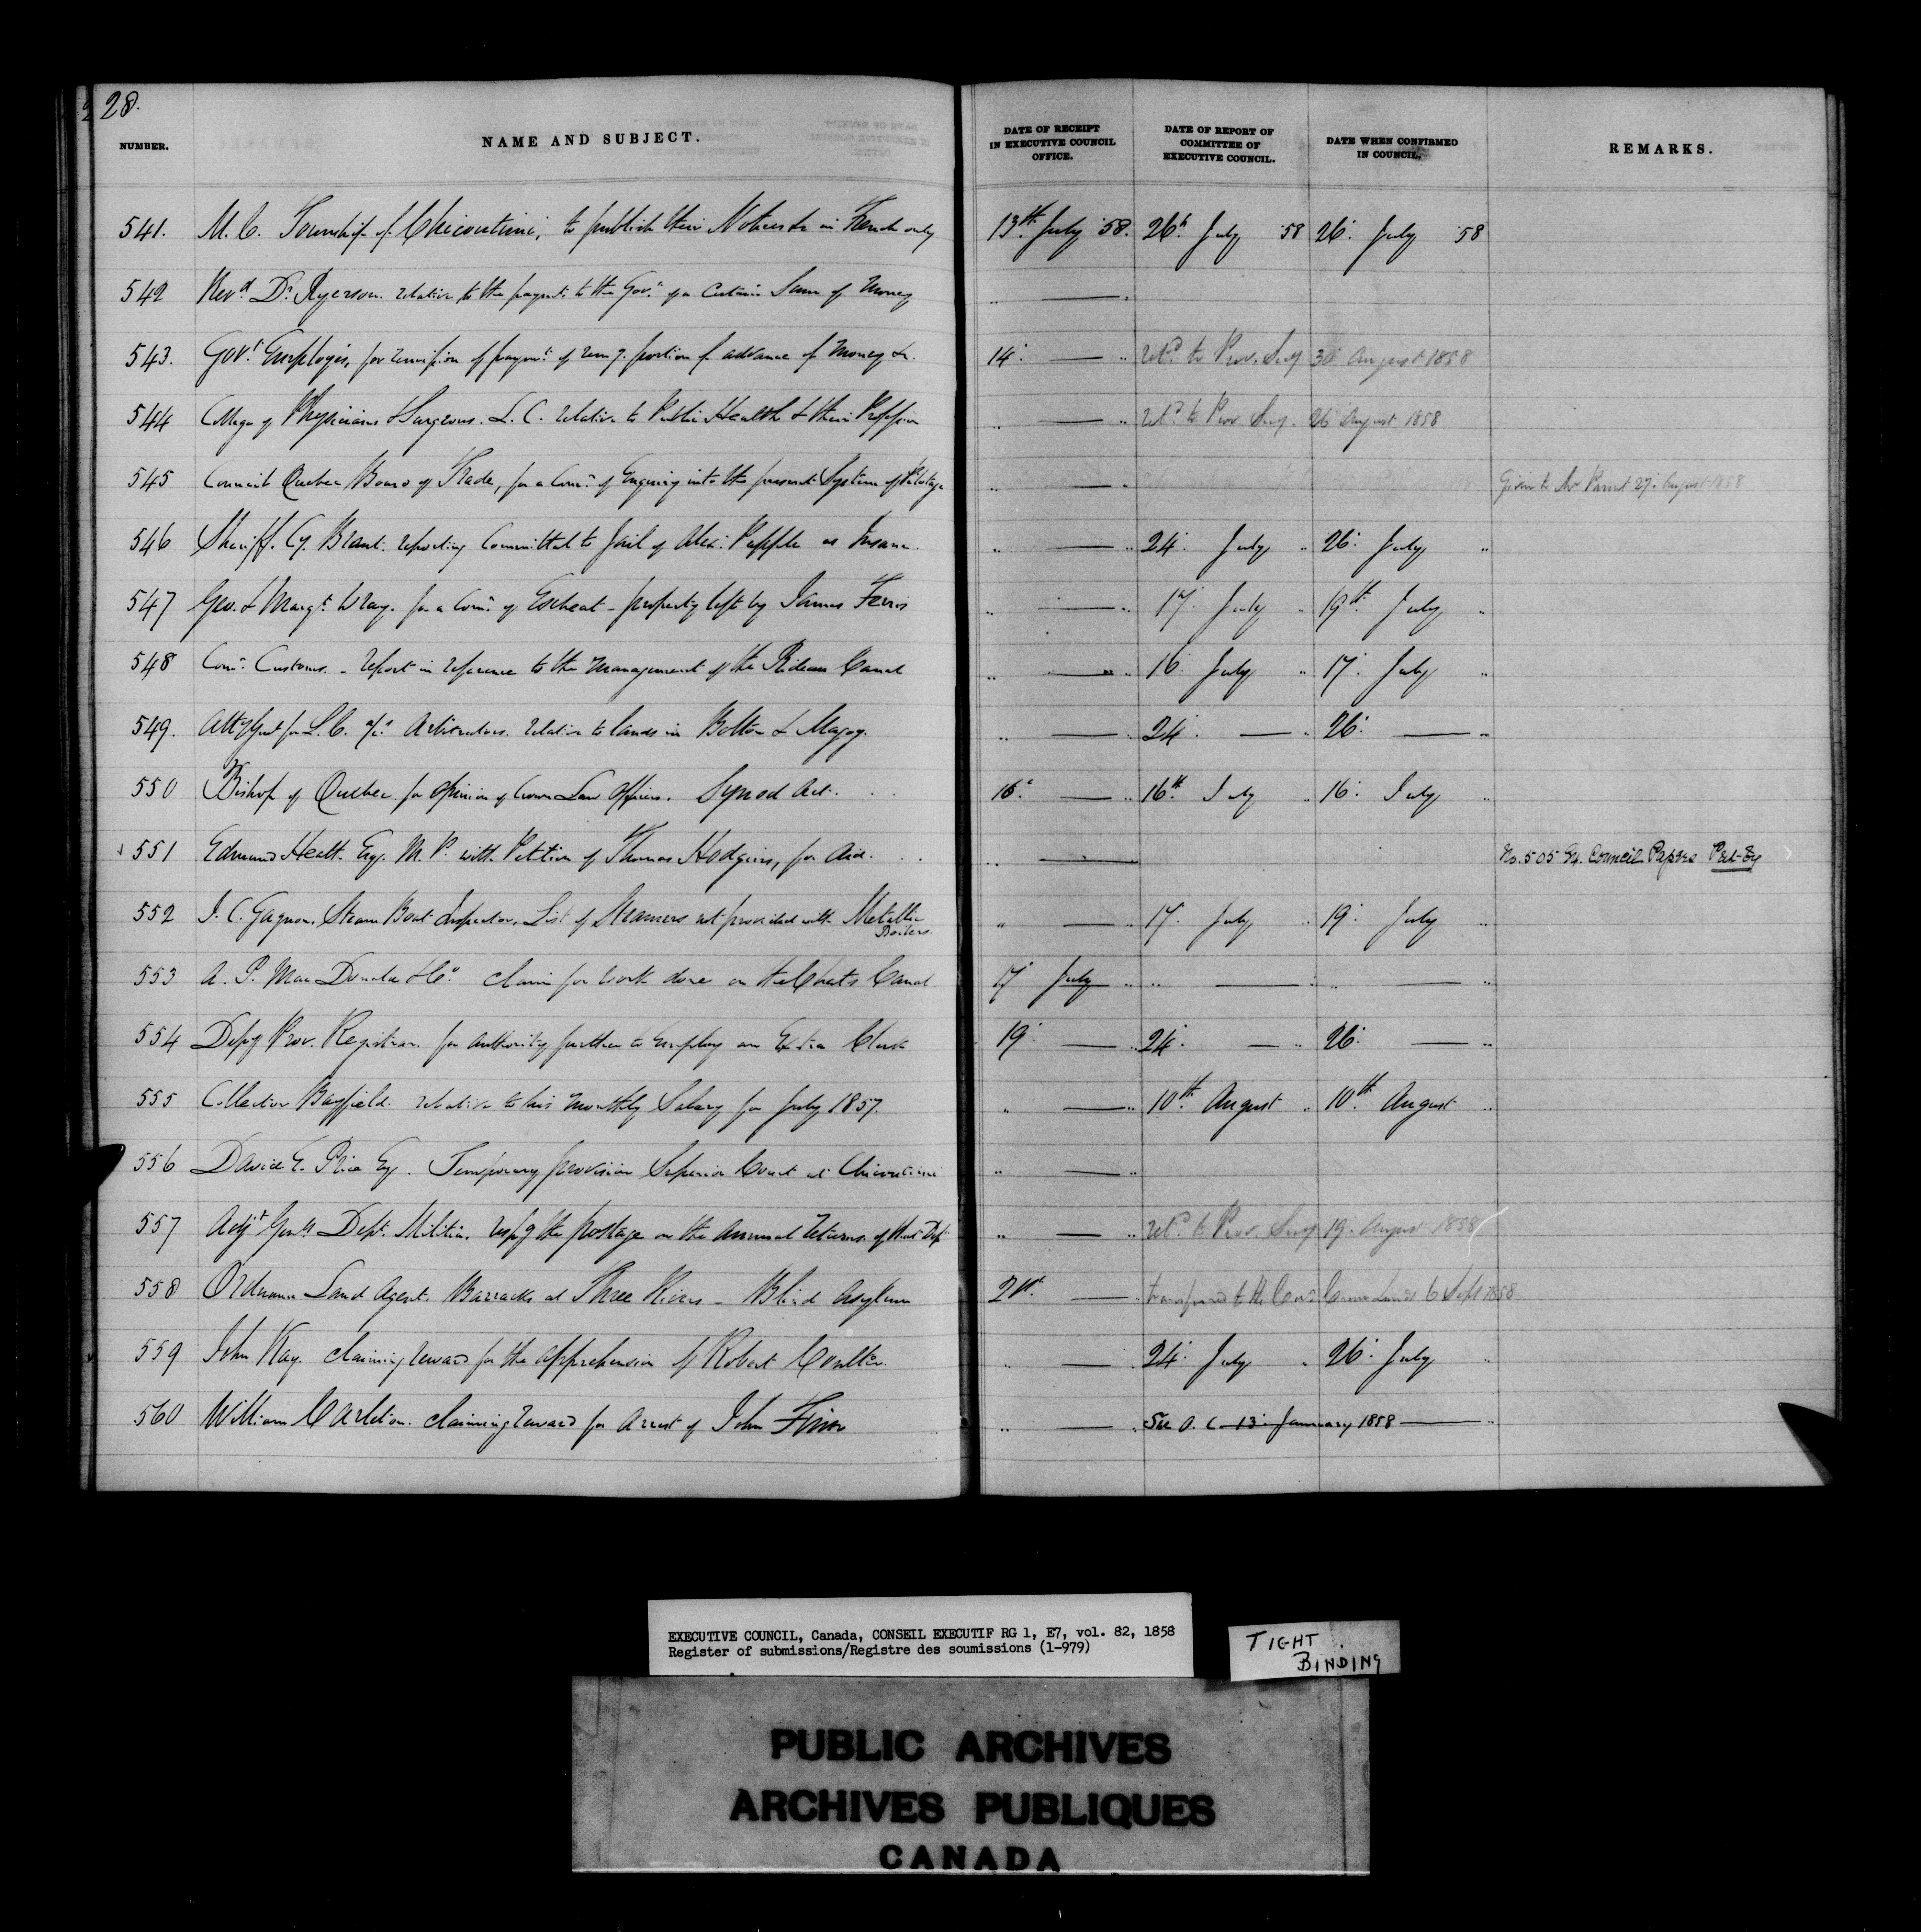 28.
NUMBER. NAME AND SUBJECT. DATE OF RECEIPT IN EXECUTIVE COUNCIL OFFICE. DATE OF REPORT OF COMMITTEE OF EXECUTIVE COUNCIL. DATE WHEN CONFIRMED IN COUNCIL. REMARKS.
541. M. C. Township of Chicoutimi, to publish their Notices &c in French only 13th July 58. 26th July 58 26. July 58
542 Revd. Dr. Ryerson. relative to the paymt. to the Govt. of a Certain Sum of Money " — "
543. Govt. Employés, for remission of paymt. of remg. portion of advance of Money &c. 14. — " Retd. to Prov. Secy 30 August 1858
544 College of Physicians & Surgeons. L. C. relative to Public Health & their Profession " — " Retd. to Prov Secy. 26 August 1858
545 Council Quebec Board of Trade, for a Comn. of Enquiry into the present System of Pilotage " — " Given to Mr Parent 27. August 1858
546 Sheriff. Cy. Brant. reporting Committal to Jail of Alex. Pepple as Insane. " — " 24. July " 26. July "
547 Geo. & Margt. Wray. for a Comn. of Escheat - property left by James Ferris " — " 17. July " 19th. July "
548 Comr. Customs. - report in reference to the Management of the Rideau Canal " — " 16. July " 17. July "
549. Atty Genl for L. C. Arbitrators. relative to lands in Bolton & Magog. " — " 24. — " 26. — "
550 Bishop of Quebec for opinion of Crown Law Officers. Synod Act. 16. — " 16th July " 16. July "
551 Edmund Heath. Esq. M. P. with Petition of Thomas Hodgins, for Aid. " — No. 505 Ex. Council Papers
552 J. C. Gagnon. Steam Boat Inspector. List of Steamers not provided with Metallic
Boilers.
" — " 17. July " 19. July "
553 A. P. MacDonald & Co. Claim for work done on the Chats Canal 17 July " " — " " — "
554 Depy Prov. Registrar. for authority further to Employ an Extra Clerk 19. — " 24. — " 26. — "
555 Collector Bayfield. relative to his Monthly Salary for July 1857. " — " 10th. August " 10th. August "
556 David E. Price Esq. Temporary provision Superior Court at Chicoutimi " — "
557 Adjt Genls Dept. Militia. respg the postage on the Annual Returns of that Dept. " — " Retd. to Prov. Secy 19. August 1858
558 Ordnance Land Agent. Barracks at Three Rivers - Blind Asylum 21st. — " transferred to the Crown Lands 6 Sept 1858
559 John Kay. Claiming reward for the apprehension of Robert Coulter. " — 24. July " 26. July "
560 William Carleton. Claiming reward for Arrest of John " — " See O. C. 13. January 1858 — "
EXECUTIVE COUNCIL, Canada, CONSEIL EXECUTIF RG 1, E7, vol. 82, 1858
Register of submissions/Registre des soumissions (1-979)
TIGHT
BINDING
PUBLIC ARCHIVES
ARCHIVES PUBLIQUES
CANADA